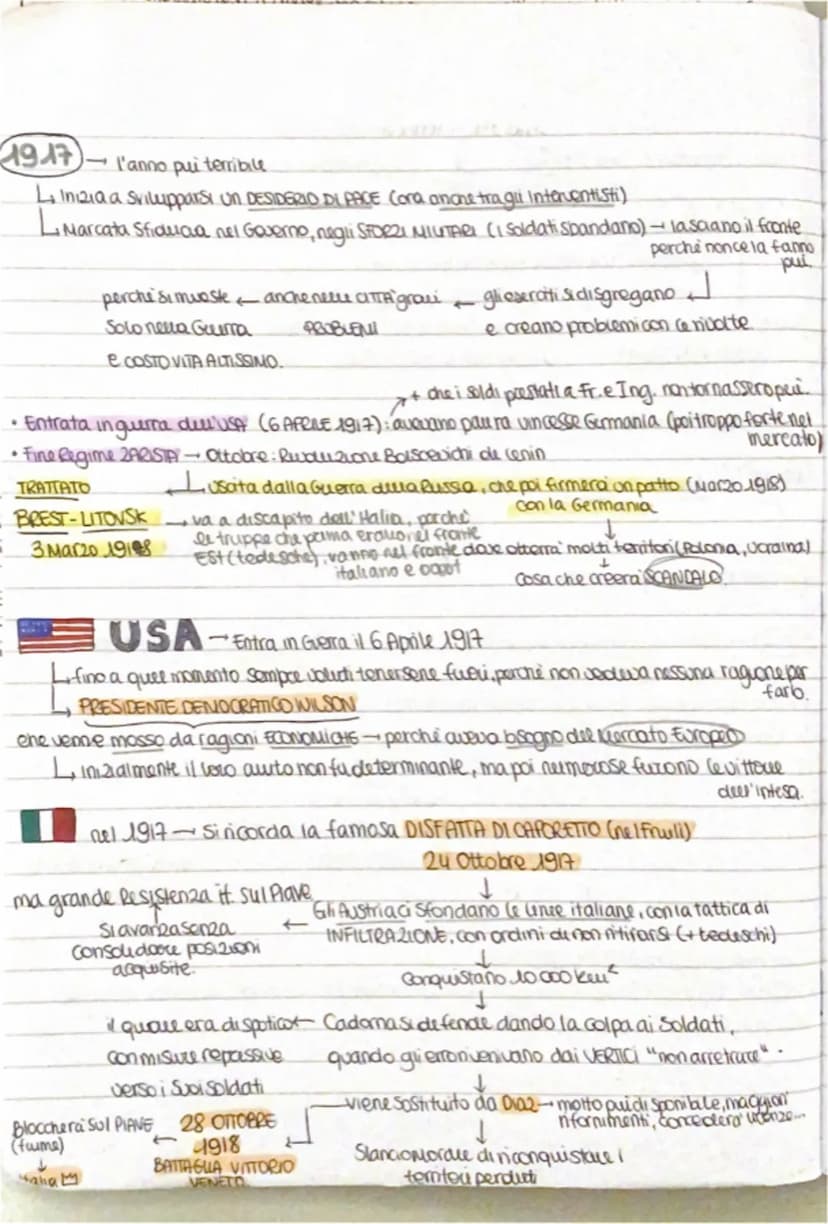 1917 → l'anno pui terribile
↳ Inizia a svilupparsi un DESIDERIO DI PACE (ora anche tra gli interventisti)
↳ Marcata sfiducia nel Governo, negli SFORZI MILITARI (i soldati sbandano) → lasciano il fronte
perché non ce la fanno
pui.
perché si investe ← anche nelle CITTÀ gravi ← gli eserciti si disgregano
solo nella Guerra PROBLEMI e creano problemi con le rivolte
e COSTO VITA ALTISSIMO.
+ che i soldi prestati a Fr. e Ing. non tornassero pui.
• Entrata in guerra dell'USA (6 APRILE 1917): avevano paura vincesse Germania (poi troppo forte nel
mercato)
• Fine Regime ZARISTA → Ottobre: Rivoluzione Bolscevichi di Lenin
TRATTATO ↳ Uscita dalla Guerra della Russia, che poi firmerà un patto (Marzo 1918)
con la Germania
BREST-LITOVSK → va a discapito dell'Italia, perché
3 Marzo 1918 le truppe che prima erano nel fronte
EST (tedesche), vanno nel fronte dove otterrà molti territori (Polonia, Ucraina)
italiano e occ
cosa che creerà SCANDALO.
USA → Entra in Guerra il 6 Aprile 1917
↳ fino a quel momento sempre voluti tenersene fuori, perché non vedeva nessuna ragione per
farlo.
↳ PRESIDENTE DEMOCRATICO WILSON
che venne mosso da ragioni ECONOMICHE → perché aveva bisogno del Mercato Europeo
↳ inizialmente il loro aiuto non fu determinante, ma poi numerose furono le vittorie
dell'intesa.
nel 1917 → si ricorda la famosa DISFATTA DI CAPORETTO (nel Friuli)
24 Ottobre 1917
ma grande Resistenza it. sul Piave
Gli Austriaci sfondano le linee italiane, con la tattica di
INFILTRAZIONE, con ordini di non ritirarsi (+ tedeschi)
si avanza senza
consolidare posizioni
acquisite.
Conquistano 10 000 km²
il quale era dispotico ← Cadorna si defende dando la colpa ai soldati,
con misure repressive quando gli errori venivano dai VERTICI "non arretrare".
verso i suoi soldati
viene sostituito da DIAZ → molto pui disponibile, maggiori
rifornimenti, concederà licenze...
Bloccherai sul PIAVE ← 28 OTTOBRE
(fiume) 1918
BATTAGLIA VITTORIO
VENETO
Slancio Morale di riconquistare i
territori perduti
Italia